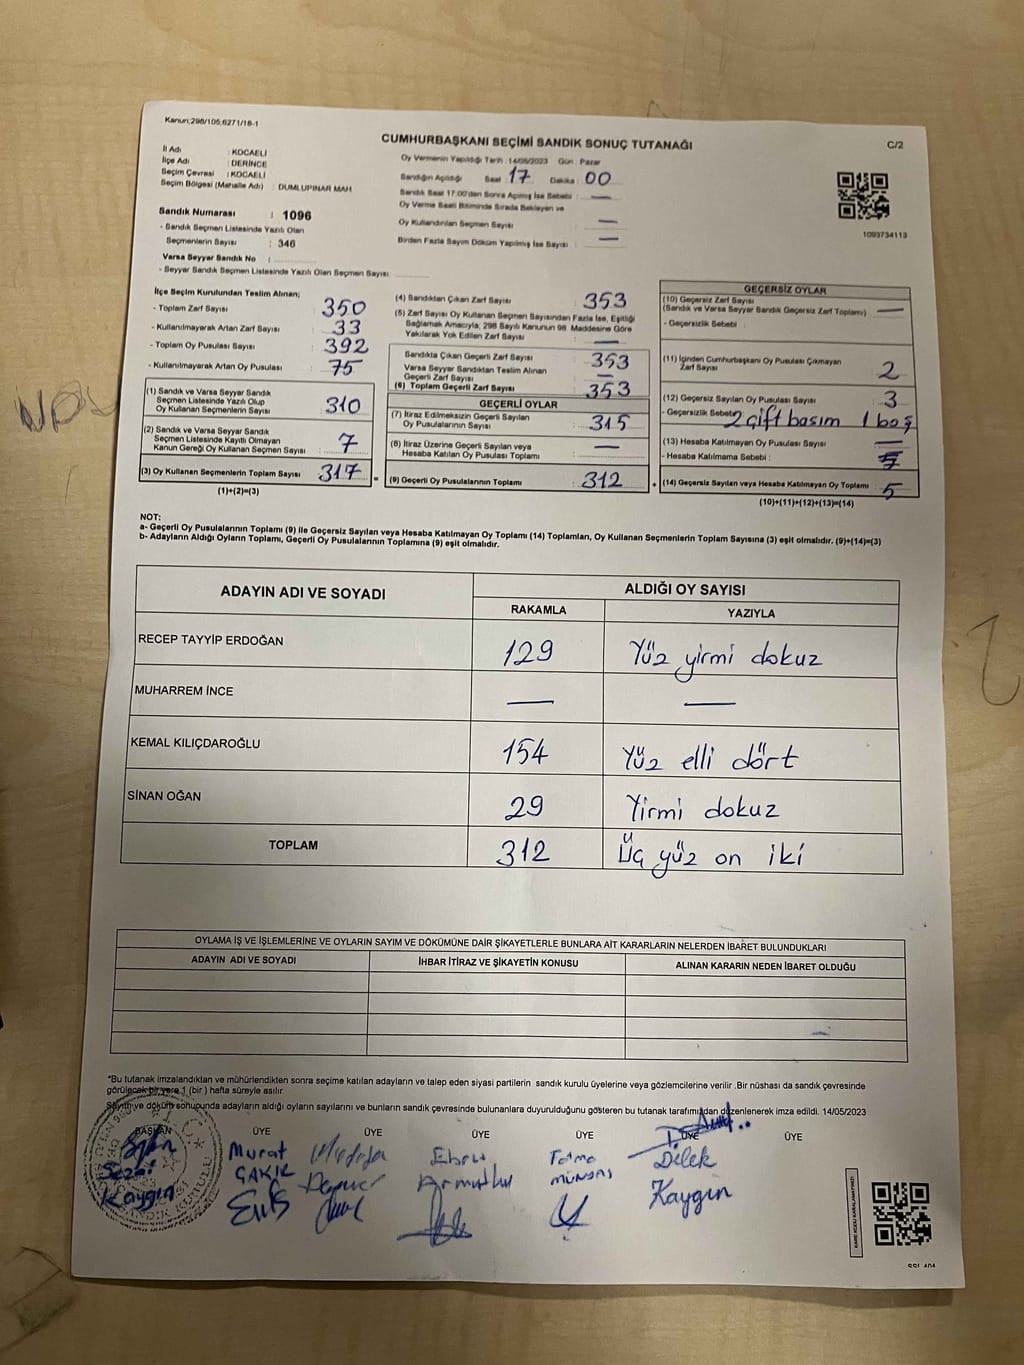 Kanun;298/105;6271/18-1
CUMHURBAŞKANI SEÇİMİ SANDIK SONUÇ TUTANAĞI
C/2
İl Adı : KOCAELİ
İlçe Adı : DERİNCE
Seçim Çevresi : KOCAELİ
Seçim Bölgesi (Mahalle Adı) : DUMLUPINAR MAH
Sandık Numarası : 1096
- Sandık Seçmen Listesinde Yazılı Olan
Seçmenlerin Sayısı : 346
Varsa Seyyar Sandık No :
- Seyyar Sandık Seçmen Listesinde Yazılı Olan Seçmen Sayısı:
Oy Vermenin Yapıldığı Tarih : 14/05/2023 Gün : Pazar
Sandığın Açıldığı Saat 17 Dakika : 00
Sandık Saat 17:00'dan Sonra Açılmış İse Sebebi : —
Oy Verme Saati Bitiminde Sırada Bekleyen ve
Oy Kullandırılan Seçmen Sayısı : —
Birden Fazla Sayım Döküm Yapılmış İse Sayısı : —
1093734113
İlçe Seçim Kurulundan Teslim Alınan;
- Toplam Zarf Sayısı : 350
- Kullanılmayarak Artan Zarf Sayısı : 33
- Toplam Oy Pusulası Sayısı : 392
- Kullanılmayarak Artan Oy Pusulası : 75
(1) Sandık ve Varsa Seyyar Sandık
Seçmen Listesinde Yazılı Olup
Oy Kullanan Seçmenlerin Sayısı : 310
(2) Sandık ve Varsa Seyyar Sandık
Seçmen Listesinde Kayıtlı Olmayan
Kanun Gereği Oy Kullanan Seçmen Sayısı : 7
(3) Oy Kullanan Seçmenlerin Toplam Sayısı : 317
(1)+(2)=(3)
(4) Sandıktan Çıkan Zarf Sayısı : 353
(5) Zarf Sayısı Oy Kullanan Seçmen Sayısından Fazla İse, Eşitliği
Sağlamak Amacıyla; 298 Sayılı Kanunun 98. Maddesine Göre
Yakılarak Yok Edilen Zarf Sayısı : —
Sandıkta Çıkan Geçerli Zarf Sayısı : 353
Varsa Seyyar Sandıktan Teslim Alınan
Geçerli Zarf Sayısı : —
(6) Toplam Geçerli Zarf Sayısı : 353
GEÇERLİ OYLAR
(7) İtiraz Edilmeksizin Geçerli Sayılan
Oy Pusulalarının Sayısı : 315
(8) İtiraz Üzerine Geçerli Sayılan veya
Hesaba Katılan Oy Pusulası Toplamı : —
(9) Geçerli Oy Pusulalarının Toplamı : 312
GEÇERSİZ OYLAR
(10) Geçersiz Zarf Sayısı
(Sandık ve Varsa Seyyar Sandık Geçersiz Zarf Toplamı) : —
- Geçersizlik Sebebi :
(11) İçinden Cumhurbaşkanı Oy Pusulası Çıkmayan
Zarf Sayısı : 2
(12) Geçersiz Sayılan Oy Pusulası Sayısı : 3
- Geçersizlik Sebebi : 2 çift basım 1 boş
(13) Hesaba Katılmayan Oy Pusulası Sayısı : —
- Hesaba Katılmama Sebebi :
(14) Geçersiz Sayılan veya Hesaba Katılmayan Oy Toplamı : 5
(10)+(11)+(12)+(13)=(14)
NOT:
a- Geçerli Oy Pusulalarının Toplamı (9) ile Geçersiz Sayılan veya Hesaba Katılmayan Oy Toplamı (14) Toplamları, Oy Kullanan Seçmenlerin Toplam Sayısına (3) eşit olmalıdır. (9)+(14)=(3)
b- Adayların Aldığı Oyların Toplamı, Geçerli Oy Pusulalarının Toplamına (9) eşit olmalıdır.
ADAYIN ADI VE SOYADI
ALDIĞI OY SAYISI
RAKAMLA YAZIYLA
RECEP TAYYİP ERDOĞAN 129 Yüz yirmi dokuz
MUHARREM İNCE — —
KEMAL KILIÇDAROĞLU 154 Yüz elli dört
SİNAN OĞAN 29 Yirmi dokuz
TOPLAM 312 Üç yüz on iki
OYLAMA İŞ VE İŞLEMLERİNE VE OYLARIN SAYIM VE DÖKÜMÜNE DAİR ŞİKAYETLERLE BUNLARA AİT KARARLARIN NELERDEN İBARET BULUNDUKLARI
ADAYIN ADI VE SOYADI İHBAR İTİRAZ VE ŞİKAYETİN KONUSU ALINAN KARARIN NEDEN İBARET OLDUĞU
*Bu tutanak imzalandıktan ve mühürlendikten sonra seçime katılan adayların ve talep eden siyasi partilerin sandık kurulu üyelerine veya gözlemcilerine verilir .Bir nüshası da sandık çevresinde
görülecek bir yere 1 (bir ) hafta süreyle asılır.
Sayım ve döküm sonucunda adayların aldığı oyların sayılarını ve bunların sandık çevresinde bulunanlara duyurulduğunu gösteren bu tutanak tarafımızdan düzenlenerek imza edildi. 14/05/2023
BAŞKAN ÜYE ÜYE ÜYE ÜYE ÜYE ÜYE
Sezai Kaygın
Murat ÇAKIR
Ebru Armutlu
Fatma
Dilek Kaygın